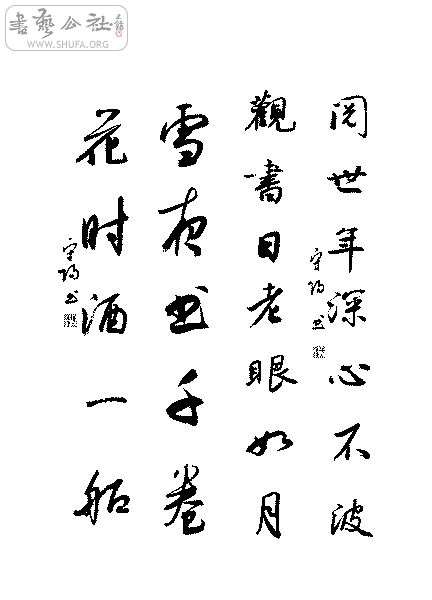 書藝公社
www.SHUFA.ORG
阅世年深心不波
觀書日老眼如月
雪夜书千卷
花时酒一船